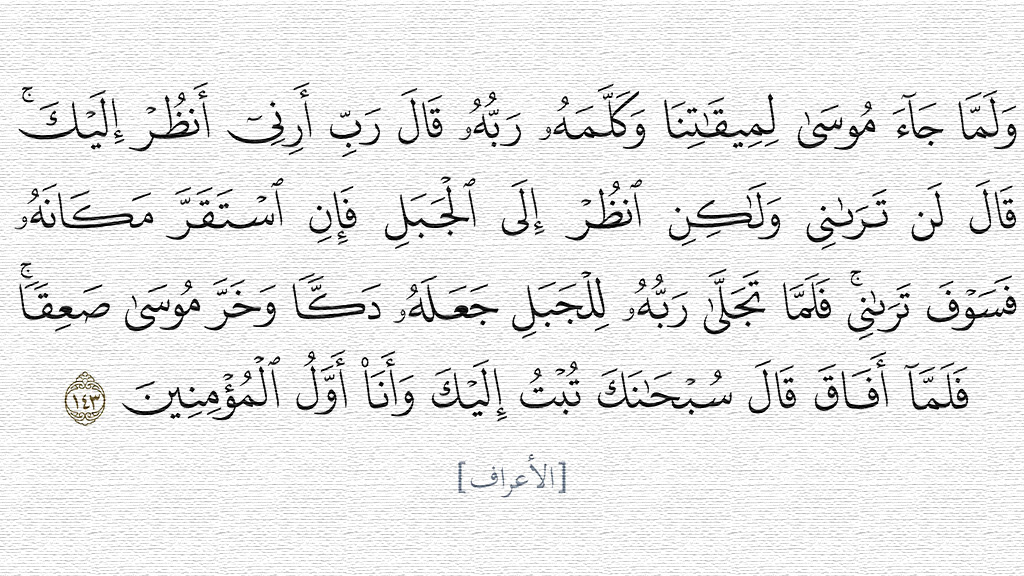 وَلَمَّا جَآءَ مُوسَىٰ لِمِيقَـٰتِنَا وَكَلَّمَهُۥ رَبُّهُۥ قَالَ رَبِّ أَرِنِىٓ أَنظُرْ إِلَيْكَ ۚ
قَالَ لَن تَرَىٰنِى وَلَـٰكِنِ ٱنظُرْ إِلَى ٱلْجَبَلِ فَإِنِ ٱسْتَقَرَّ مَكَانَهُۥ
فَسَوْفَ تَرَىٰنِى ۚ فَلَمَّا تَجَلَّىٰ رَبُّهُۥ لِلْجَبَلِ جَعَلَهُۥ دَكًّا وَخَرَّ مُوسَىٰ صَعِقًا ۚ
فَلَمَّآ أَفَاقَ قَالَ سُبْحَـٰنَكَ تُبْتُ إِلَيْكَ وَأَنَا۠ أَوَّلُ ٱلْمُؤْمِنِينَ ١٤٣
[الأعراف]